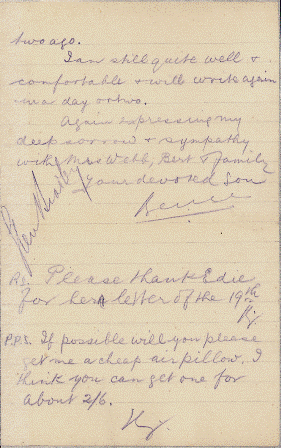 two ago.
I am still quite well &
comfortable & will write again
in a day or two.
Again expressing my
deep sorrow & sympathy
with Mrs Webb, Bert & family
Your devoted Son
P.S. Please thank Edie
for her letter of the 19th
P.P.S. If possible will you please
get me a cheap air pillow. I
think you can get one for
about 2/6.